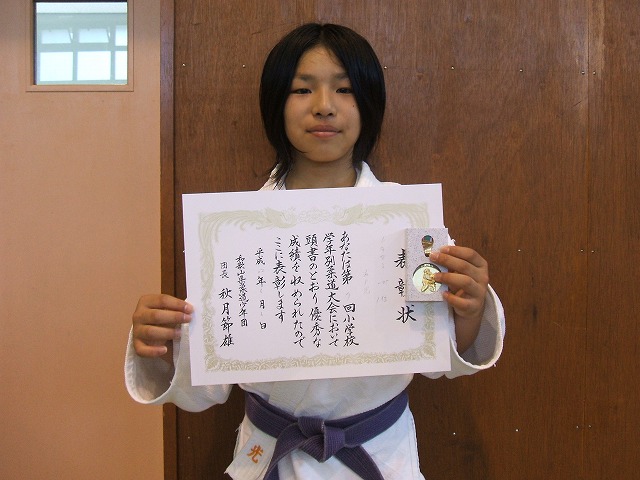 表彰状
あなたは第 回小学校
学年別柔道大会において
頭書のとおり優秀な
成績を収められたので
ここに表彰します
平成 年 月 日
和歌山県柔道少年団
団長 秋月節雄
光